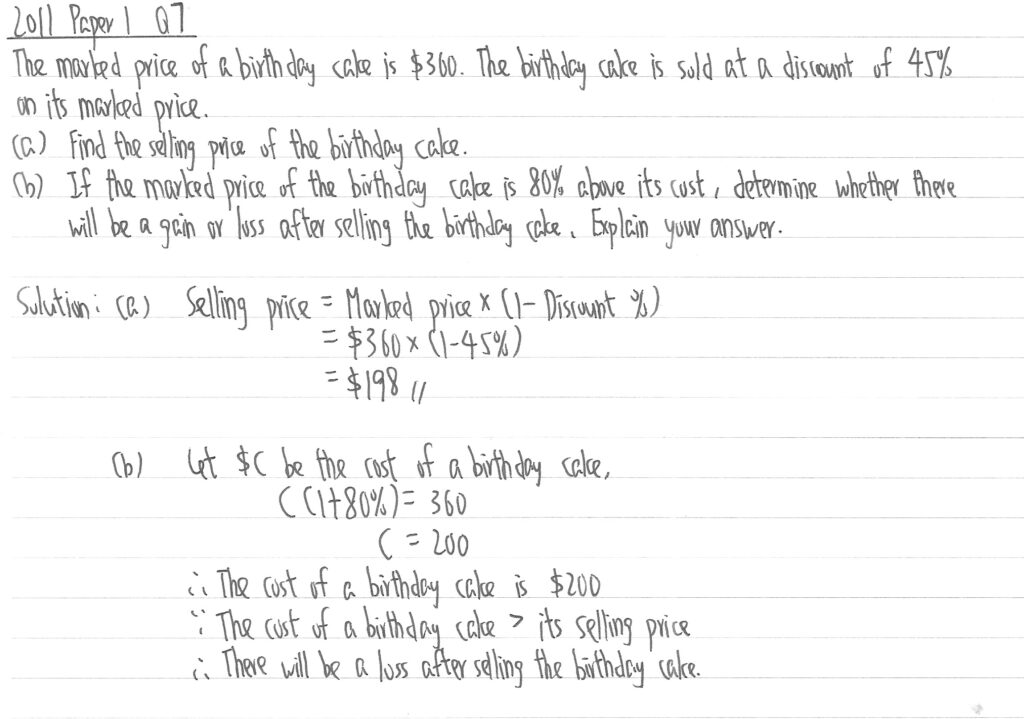 2011 Paper 1 Q7
The marked price of a birthday cake is $360. The birthday cake is sold at a discount of 45%
on its marked price.
(a) Find the selling price of the birthday cake.
(b) If the marked price of the birthday cake is 80% above its cost, determine whether there
will be a gain or loss after selling the birthday cake. Explain your answer.
Solution: (a) Selling price = Marked price × (1- Discount %)
= $360 × (1-45%)
= $198 //
(b) Let $C be the cost of a birthday cake,
C(1+80%) = 360
C = 200
∴ The cost of a birthday cake is $200
∵ The cost of a birthday cake > its selling price
∴ There will be a loss after selling the birthday cake.